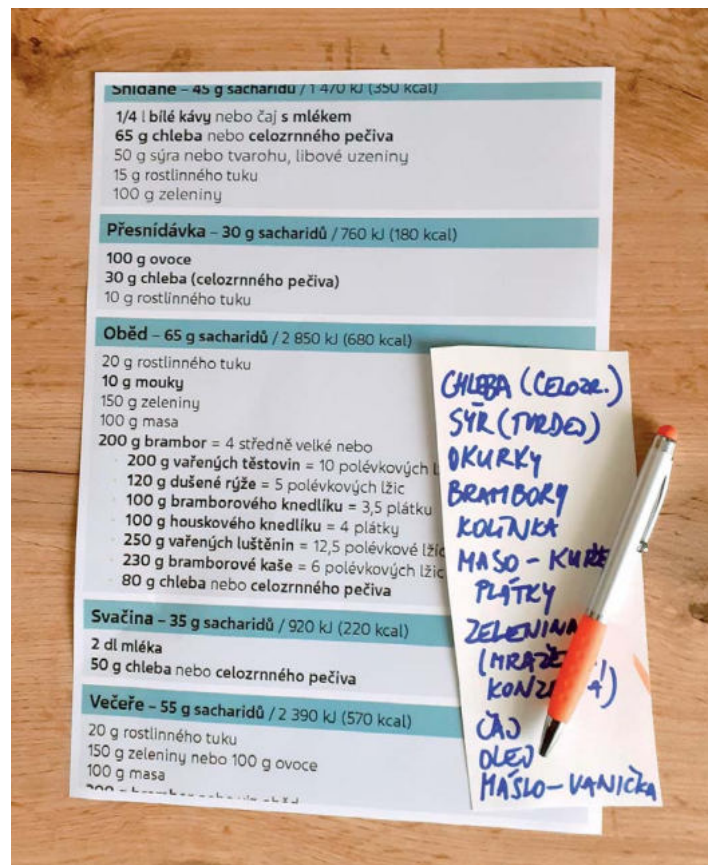 Snídaně – 45 g sacharidů / 1 470 kJ (350 kcal)
1/4 l bílé kávy nebo čaj s mlékem
65 g chleba nebo celozrnného pečiva
50 g sýra nebo tvarohu, libové uzeniny
15 g rostlinného tuku
100 g zeleniny
Přesnídávka – 30 g sacharidů / 760 kJ (180 kcal)
100 g ovoce
30 g chleba (celozrnného pečiva)
10 g rostlinného tuku
Oběd – 65 g sacharidů / 2 850 kJ (680 kcal)
20 g rostlinného tuku
10 g mouky
150 g zeleniny
100 g masa
200 g brambor = 4 středně velké nebo
200 g vařených těstovin = 10 polévkových
120 g dušené rýže = 5 polévkových lžic
100 g bramborového knedlíku = 3,5 plátku
100 g houskového knedlíku = 4 plátky
250 g vařených luštěnin = 12,5 polévkové lžíc
230 g bramborové kaše = 6 polévkových lžic
80 g chleba nebo celozrnného pečiva
Svačina – 35 g sacharidů / 920 kJ (220 kcal)
2 dl mléka
50 g chleba nebo celozrnného pečiva
Večeře – 55 g sacharidů / 2 390 kJ (570 kcal)
20 g rostlinného tuku
150 g zeleniny nebo 100 g ovoce
100 g masa
CHLEBA (CELOZR.)
SÝR (TVRDEJ)
OKURKY
BRAMBORY
KOLÍNKA
MASO – KUŘE
PLÁTKY
ZELENINA
ČAJ
OLEJ
MÁSLO – VANIČKA